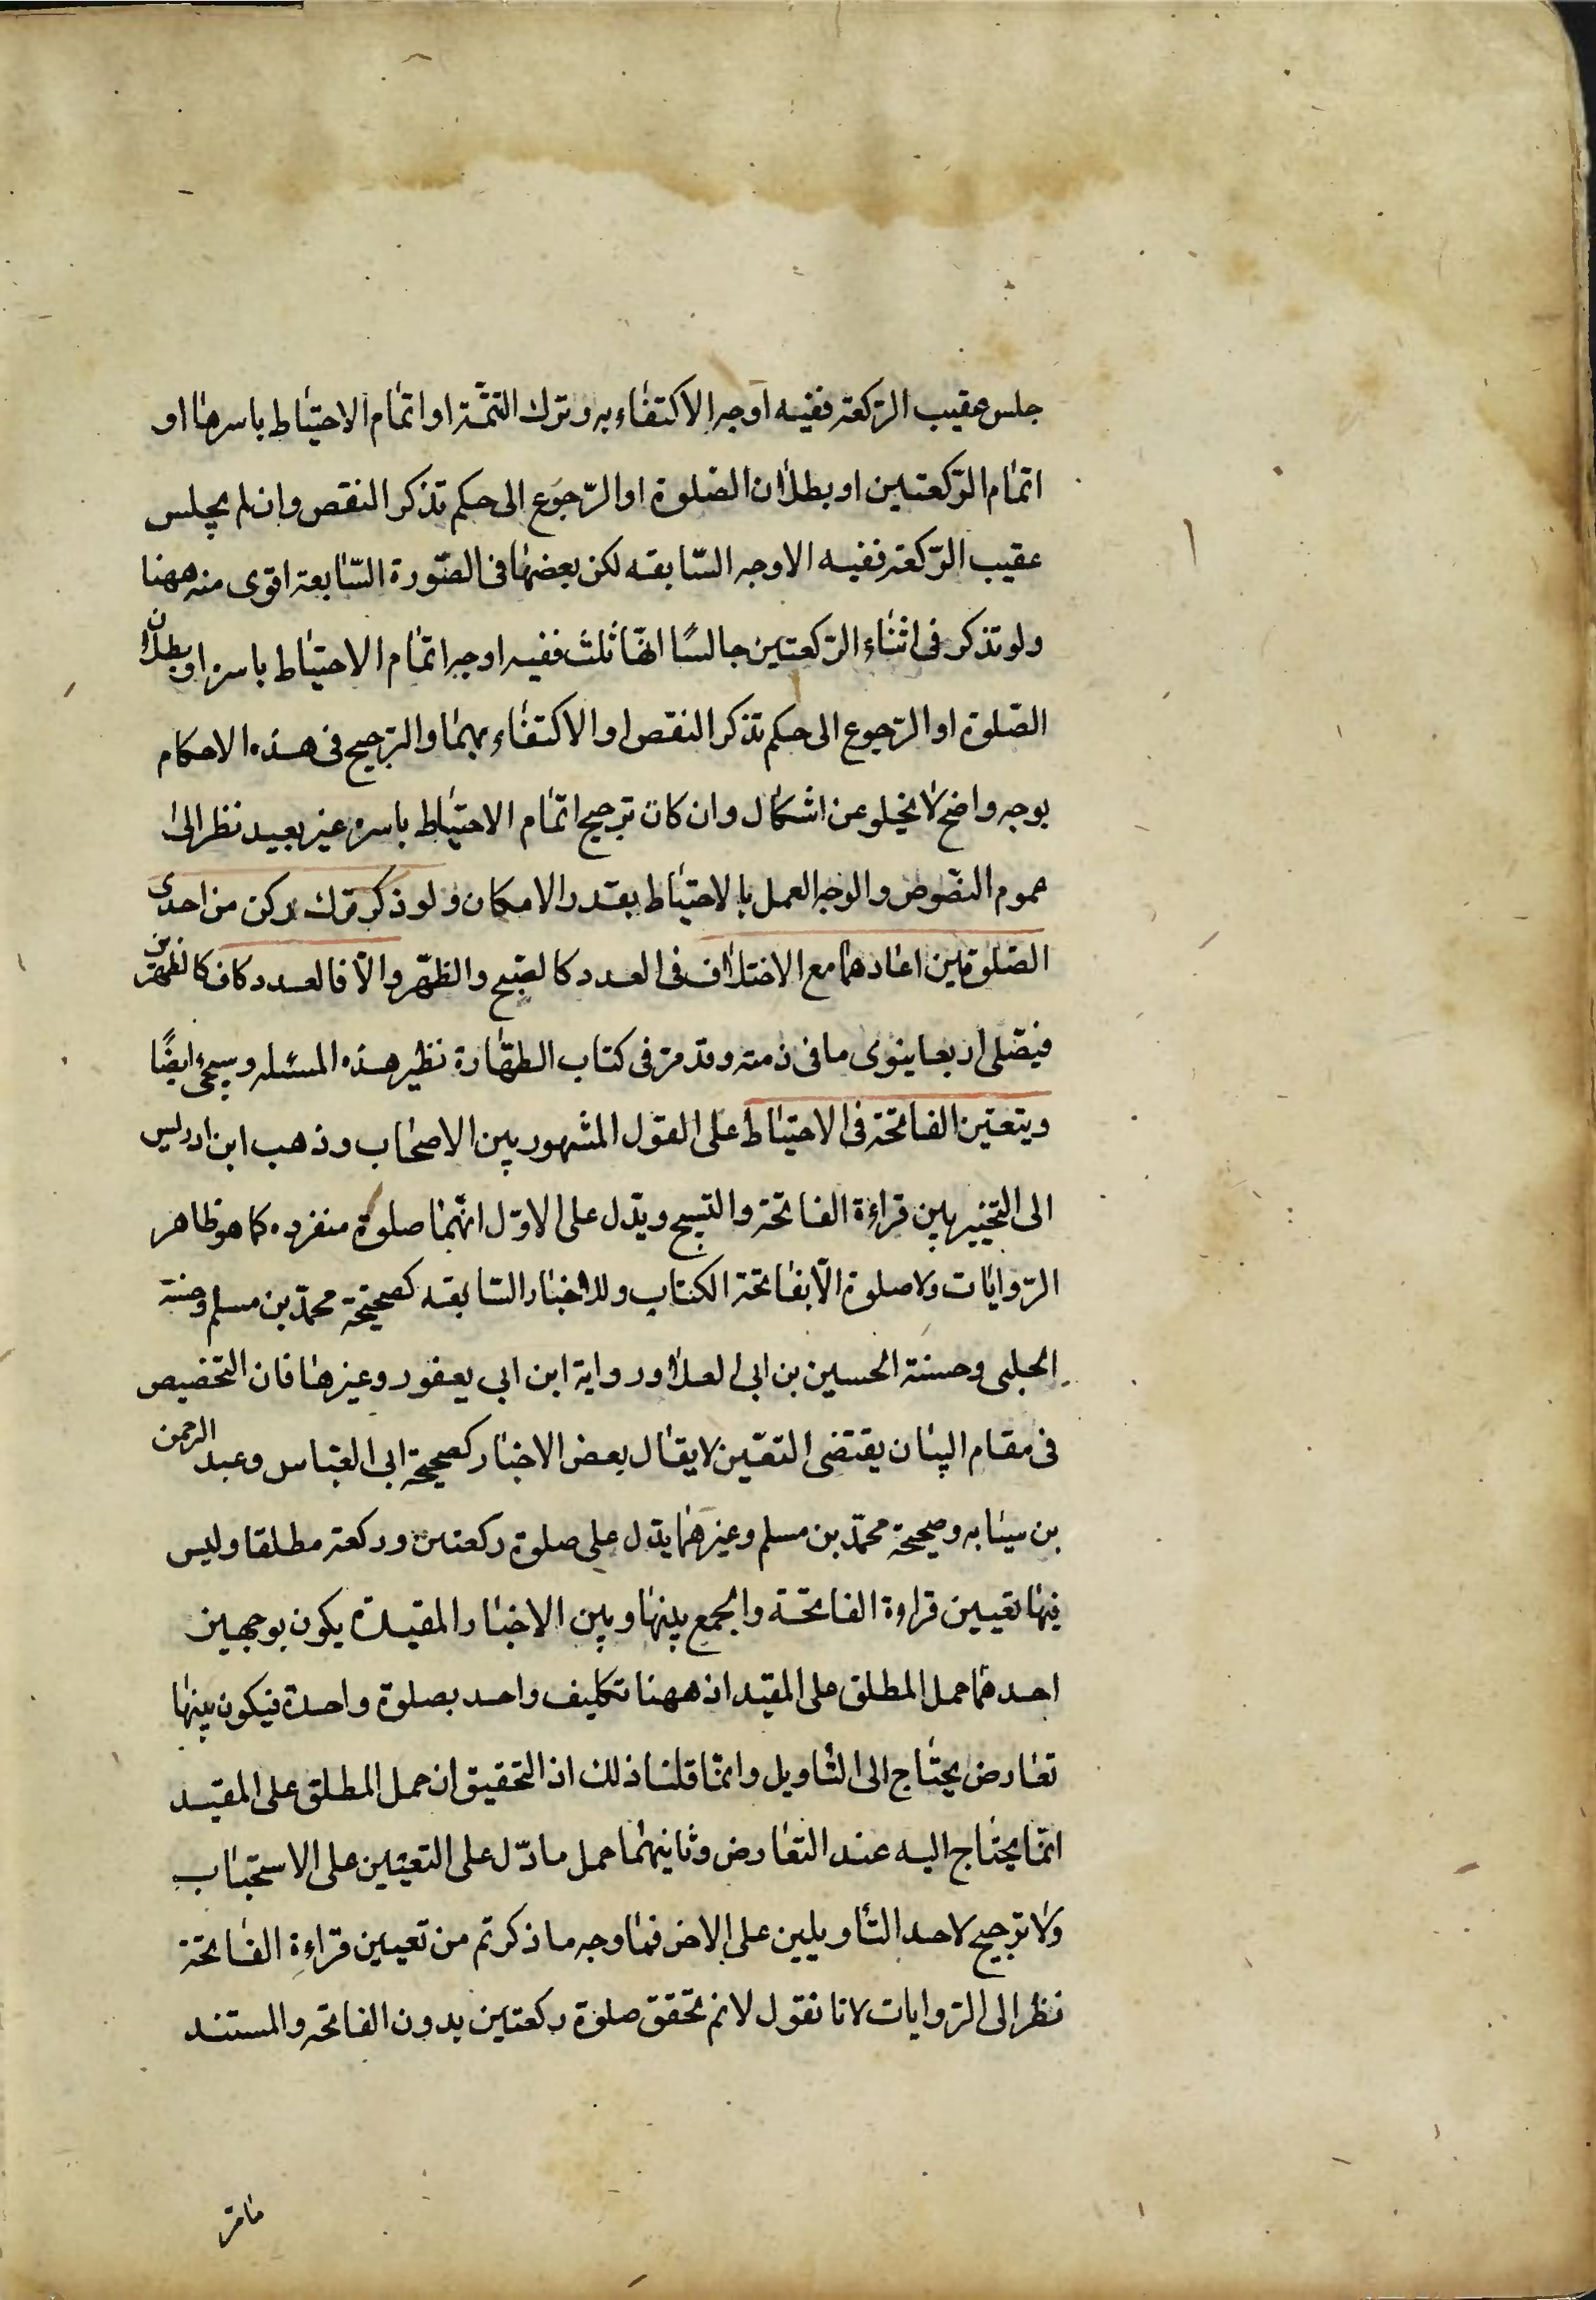 جلس عقيب الرّكعة ففيه اوجه الاكتفاء به وترك التتمّة او اتمام الاحتياط باسرها او
اتمام الرّكعتين او بطلان الصّلوة او الرّجوع الى حكم تذكر النقص وان لم يجلس
عقيب الرّكعة ففيه الاوجه السّابقه لكن بعضها فى الصّورة السّابعة اقوى منه ههنا
ولو تذكر فى اثناء الرّكعتين جالسًا انّها ثلث ففيه اوجه اتمام الاحتياط باسره او بطلان
الصّلوة او الرّجوع الى حكم تذكر النقص او الاكتفاء بهما والترجيح فى هذه الاحكام
بوجه واضح لا يخلو عن اشكال وان كان ترجيح اتمام الاحتياط باسره غير بعيد نظر الى
عموم النصّوص والوجه العمل بالاحتياط بقدر الامكان ولو ذكر ترك ركن من احدى
الصّلوتين اعادهما مع الاختلاف فى العدد كالصّبح والظّهر والّا فالعدد كاف كالظهرين
فيصّلى اربعا ينوى ما فى ذمته وقد مرّ فى كتاب الطهّارة نظير هذه المسئله وسيجىء ايضًا
ويتعيّن الفاتحة فى الاحتياط على القول المشهور بين الاصحاب وذهب ابن ادريس
الى التخيير بين قراءة الفاتحة والتسبيح ويدّل على الاوّل انّهما صلوة منفرده كما هو ظاهر
الرّوايات ولا صلوة الّا بفاتحة الكتاب وللاخبار السّابقه كصحيحة محمّد بن مسلم وحسنة
الحلبى وحسنة الحسين بن ابى العلا ورواية ابن ابى يعفور وغيرها فان التخصيص
فى مقام البيان يقتضى التعّين لا يقال بعض الاخبار كصحيحة ابى العبّاس وعبد الرحمن
بن سيابه وصحيحة محمّد بن مسلم وغيرهما يدّل على صلوة ركعتين وركعة مطلقا وليس
فيها تعيين قراءة الفاتحة والجمع بينها وبين الاخبار المقيدة يكون بوجهين
احدهما حمل المطلق على المقيد اذ ههنا تكليف واحد بصلوة واحدة فيكون بينها
تعارض يحتاج الى التاويل وانّما قلنا ذلك اذ التحقيق ان حمل المطلق على المقيد
انّما يحتاج اليه عند التعارض وثانيهما حمل ما دّل على التعيّين على الاستحباب
ولا ترجيح لاحد التأويلين على الاخر فما وجه ما ذكرتم من تعيين قراءة الفاتحة
نظر الى الرّوايات لانا نقول لانم تحقق صلوة ركعتين بدون الفاتحه والمستند
مامرّ